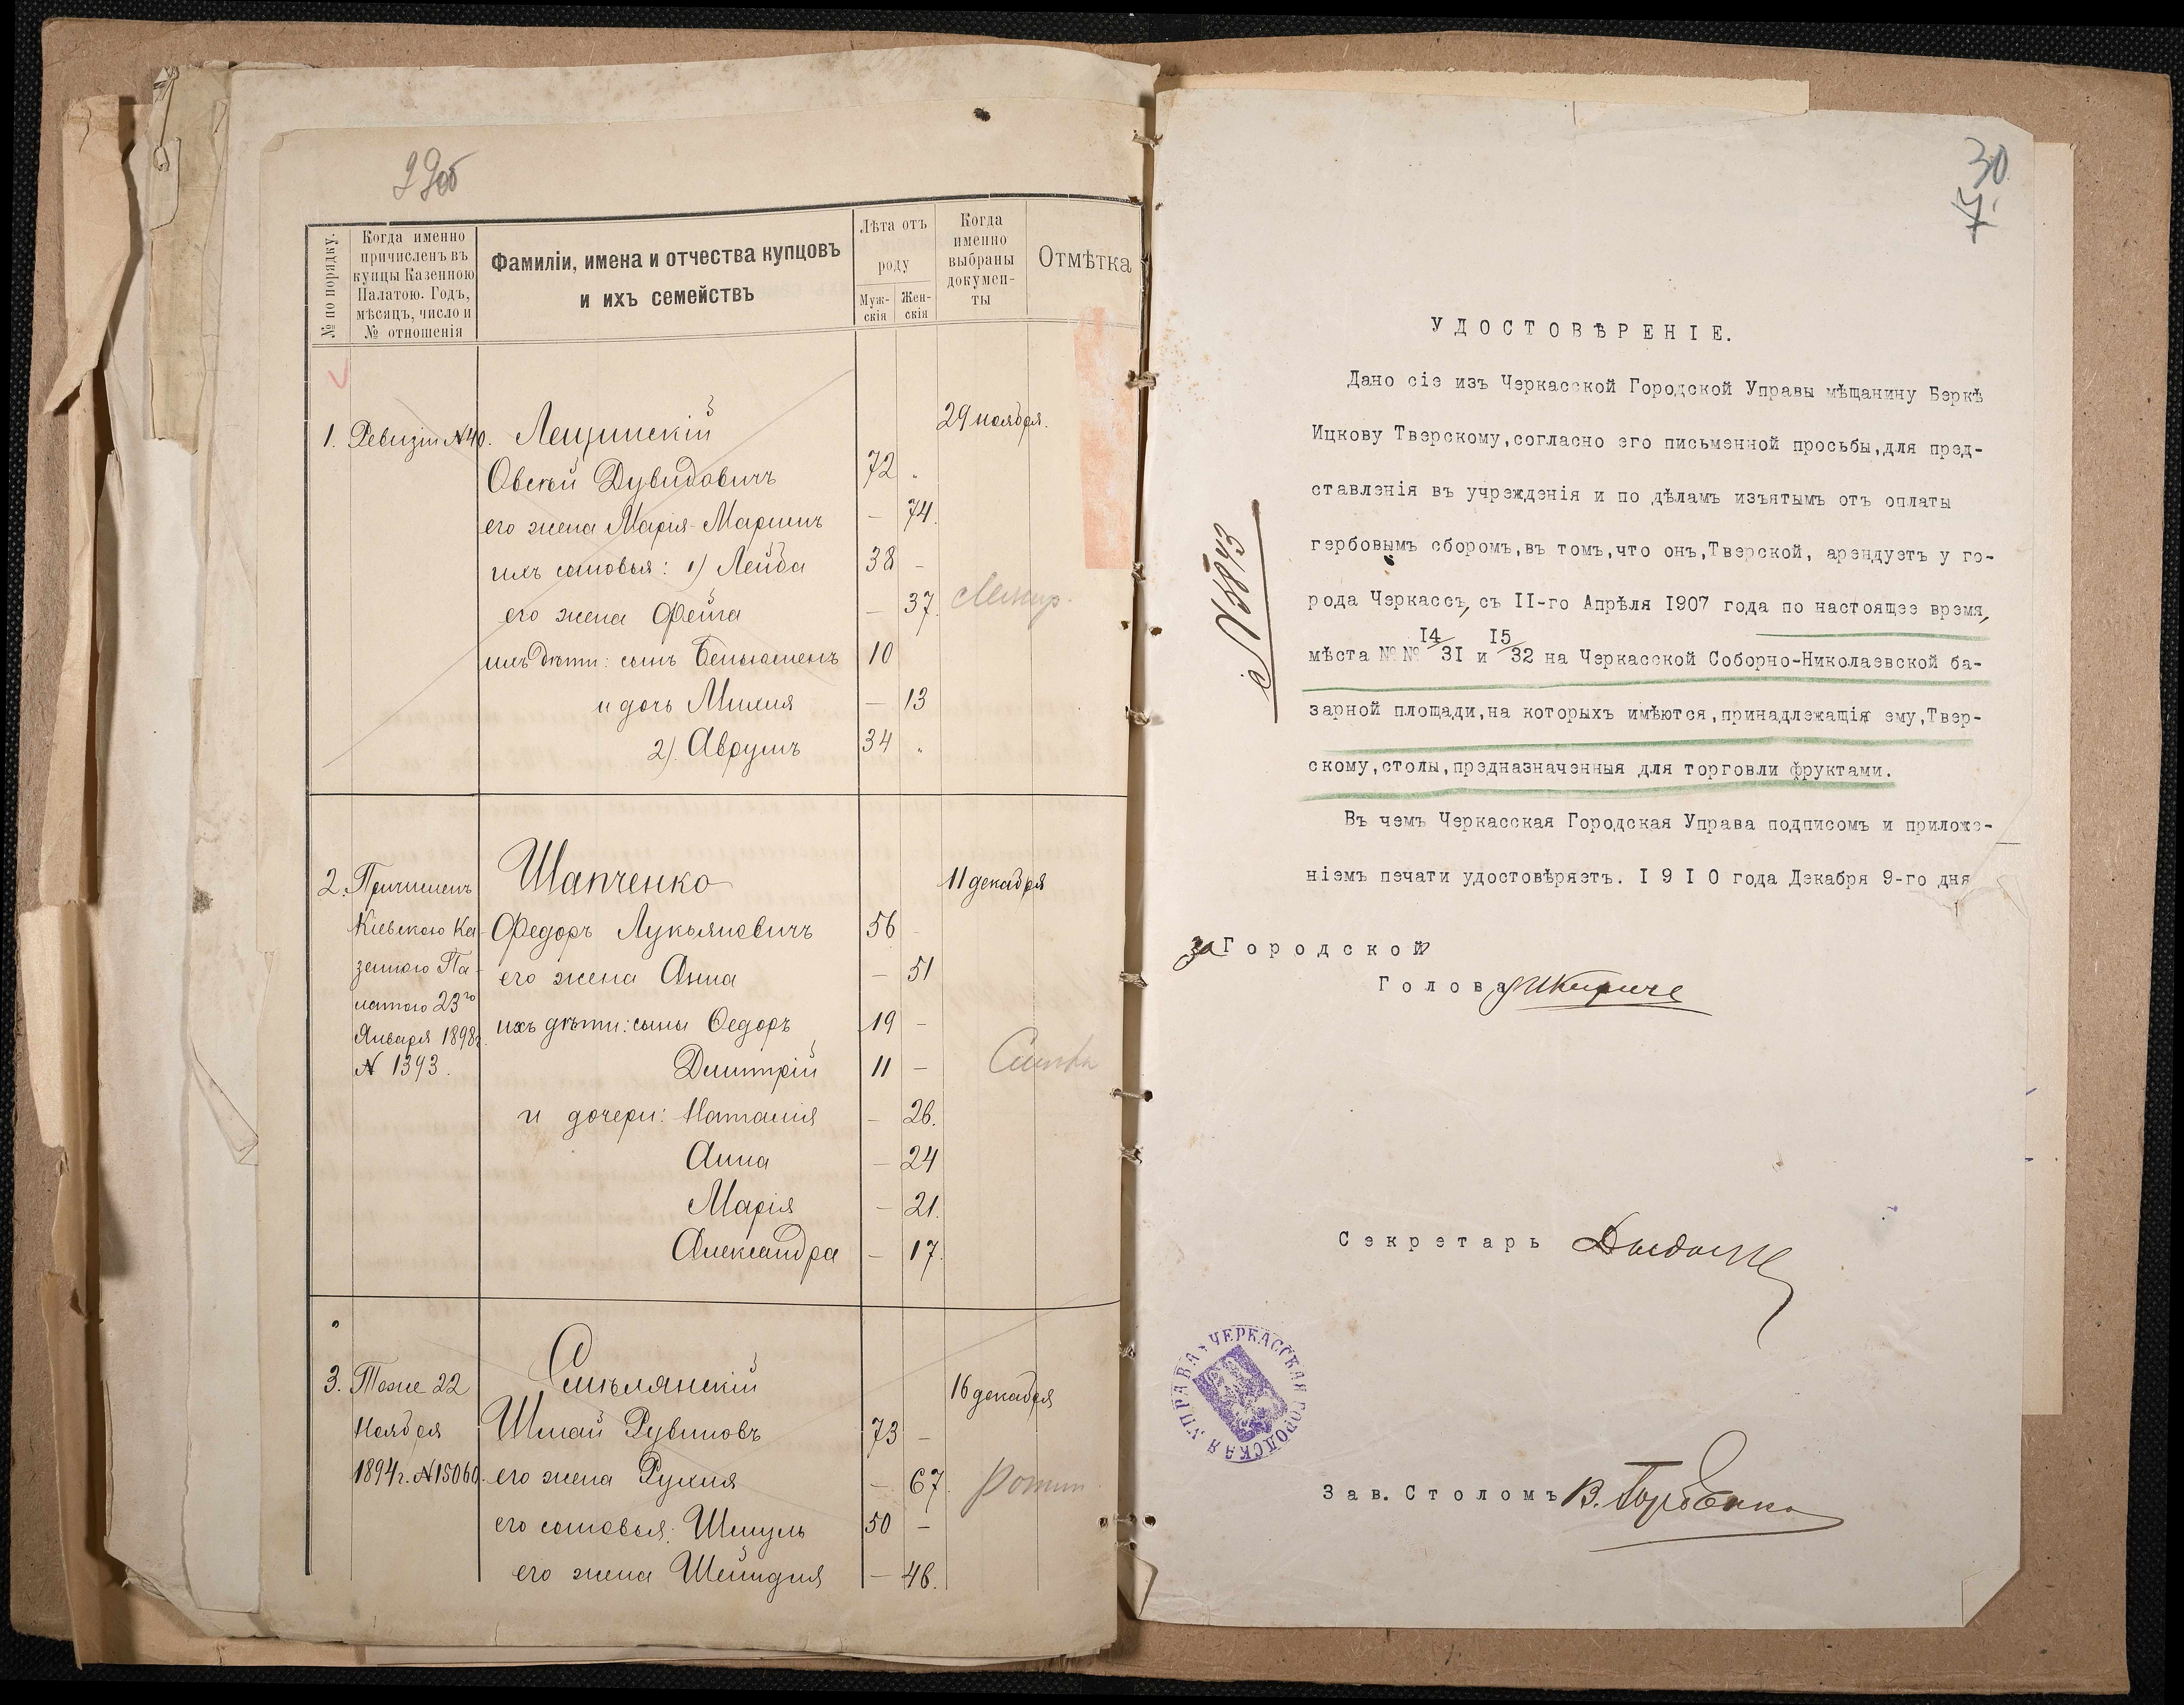 29об
№ по порядку.
Когда именно
причисленъ въ
купцы Казенною
Палатою. Годъ,
мѣсяцъ, число и
№ отношенія
Фамиліи, имена и отчества купцовъ
и ихъ семействъ
Лѣта отъ
роду
Муж-
скія
Жен-
скія
Когда
именно
выбраны
докумен-
ты
Отмѣтка
1. Ревизіи №40. Лещинскій 29 ноября.
Овсей Дувидовичъ 72 "
его жена Марія-Маріимъ — 74.
ихъ сыновья: 1) Лейба 38 —
его жена Фейга — 37.
ихъ дѣти: сынъ Беньяменъ 10
и дочь Михля — 13
2). Аврумъ 34 "
2. Причисленъ Шапченко 11 декабря
Кіевскою Ка- Федоръ Лукьяновичъ 56 —
зенною Па- его жена Анна — 51
латою 23го
Января 1898г. ихъ дѣти: сыны Ѳедоръ 19 —
№ 1393. Дмитрій 11 —
и дочери: Наталія — 26.
Анна — 24
Марія — 21.
Александра — 17.
3. Тоже 22 Смѣлянскій 16 декабря
Ноября Шмай Рувиновъ 73 —
1894г. №15060. его жена Рухля — 67.
его сыновья: Шмуль 50 —
его жена Шейндля — 46.
30
7.
УДОСТОВѢРЕНІЕ.
Дано сіе изъ Черкасской Городской Управы мѣщанину Беркѣ
Ицкову Тверскому,согласно его письменной просьбы,для пред-
ставленія въ учрежденія и по дѣламъ изъятымъ отъ оплаты
гербовымъ сборомъ,въ томъ,что онъ,Тверской, арендуетъ у го-
рода Черкассъ, съ II-го Апрѣля I907 года по настоящее время,
мѣста №№ I4/3I и I5/32 на Черкасской Соборно-Николаевской ба-
зарной площади,на которыхъ имѣются,принадлежащія ему,Твер-
скому,столы,предназначенныя для торговли фруктами.
Въ чемъ Черкасская Городская Управа подписомъ и приложе-
ніемъ печати удостовѣряетъ. I 9 I 0 года Декабря 9-го дня
№ 5843
за Городской
Голова
Секретарь
ЧЕРКАССКАЯ ГОРОДСКАЯ УПРАВА
Зав. Столомъ В. Горбенко